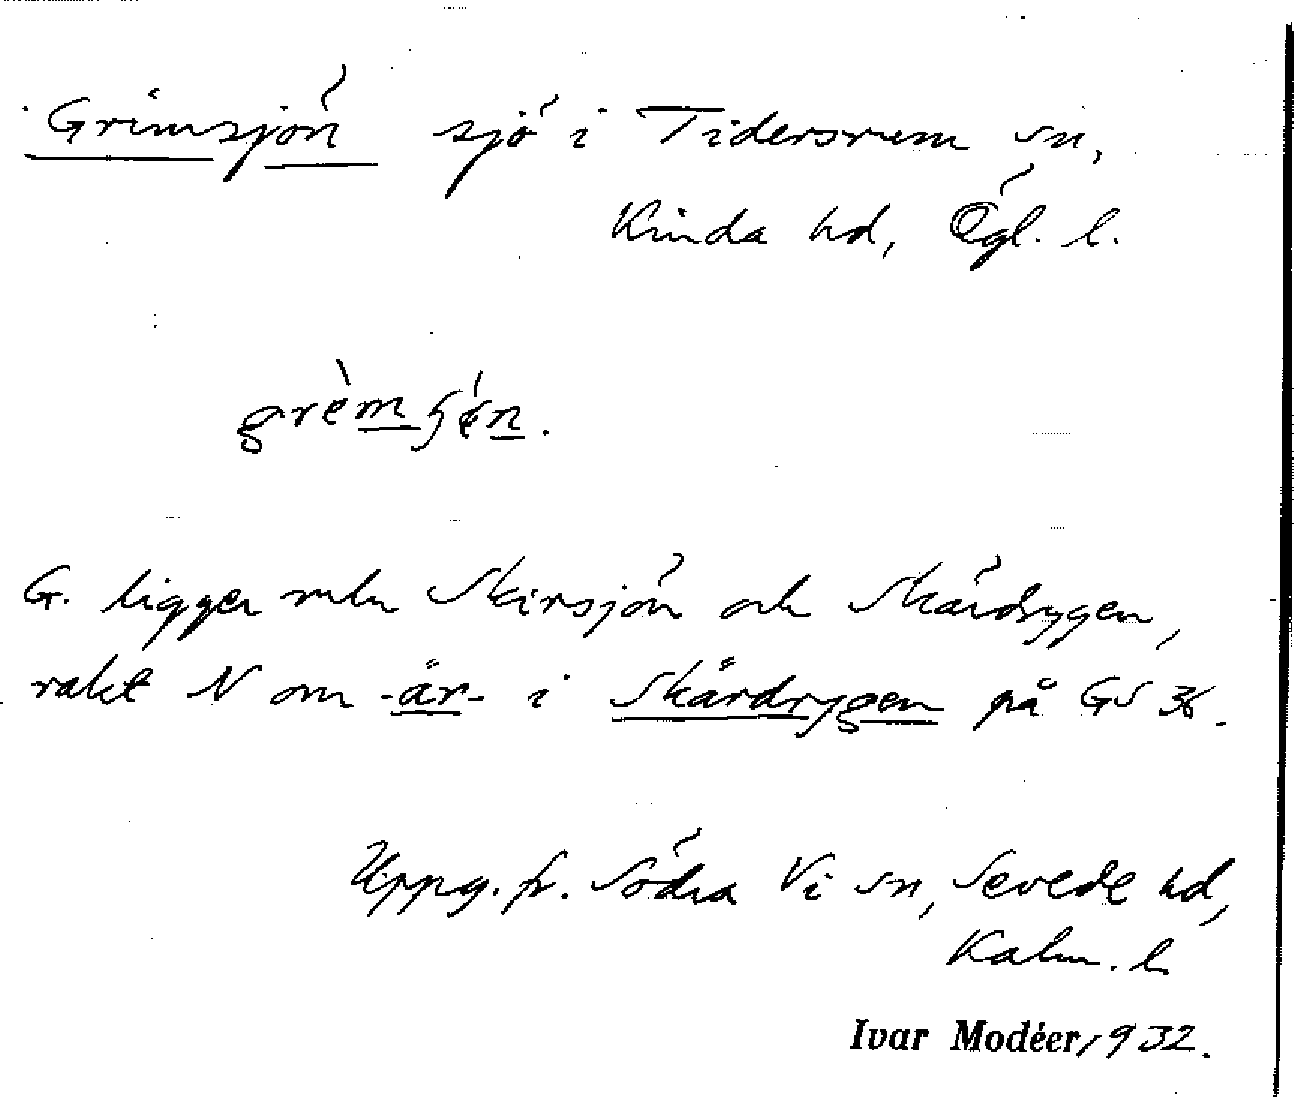 Grimsjön sjö i Tidersrum sn,
Kinda hd, Ögl. l.
grèmʃén.
G. ligger mln Skirsjön och Skärdrygen,
rakt N om -är- i Skärdrygen på GS 36.
Uppg. fr. Södra Vi sn, Sevede hd,
Kalm. l.
Ivar Modéer, 1932.